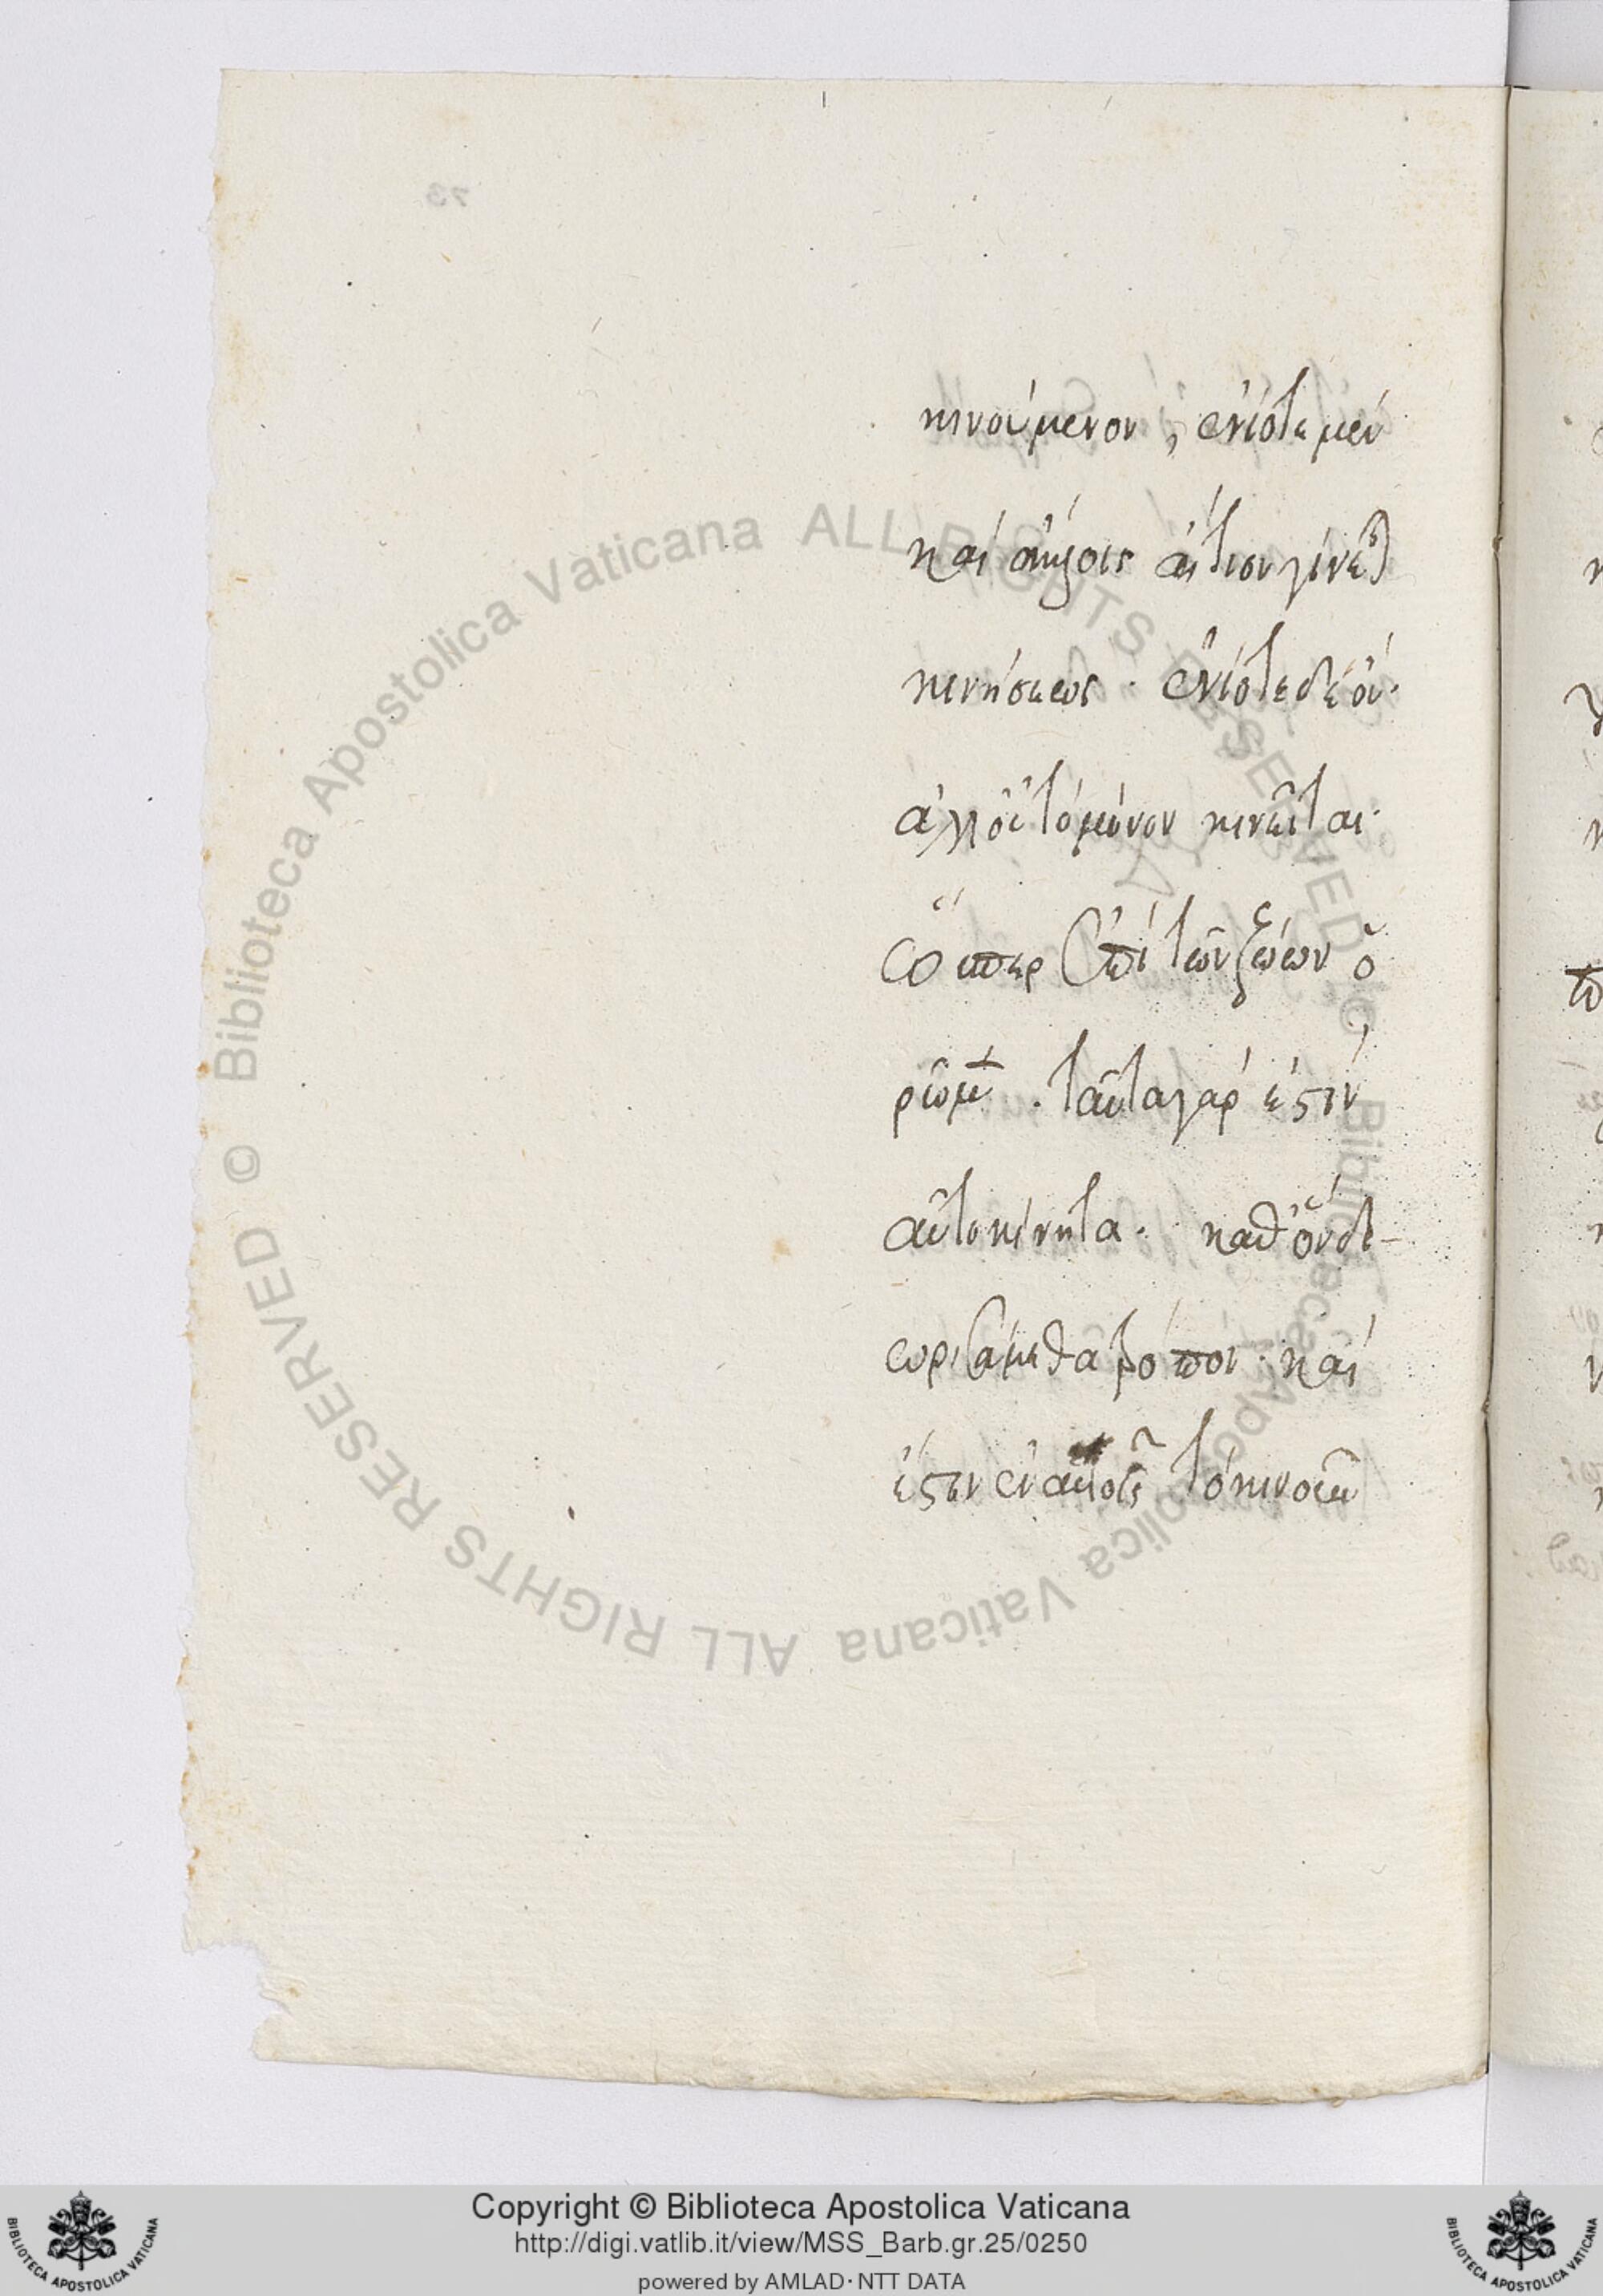 κινούμενον, ἐνίοτε μὲν
καὶ ἄλλοις αἴτιον γίνεται
κινήσεως· ἐνίοτε δὲ οὐ·
ἀλλ' αὐτὸ μόνον κινεῖται·
ὅπερ ἐπὶ τῶν ζώων ὁ
ρῶμεν. ταῦτα γὰρ ἐστὶν
αὐτοκίνητα· καθ' ὃν δι-
ωρισάμεθα τρόπον· καὶ
ἔστιν ἐν αὐτοῖς τὸ κινοῦν
© Biblioteca Apostolica Vaticana ALL RIGHTS RESERVED © Biblioteca Apostolica Vaticana ALL RIGHTS RESERVED
Copyright © Biblioteca Apostolica Vaticana
http://digi.vatlib.it/view/MSS_Barb.gr.25/0250
powered by AMLAD·NTT DATA
BIBLIOTECA APOSTOLICA VATICANA
BIBLIOTECA APOSTOLICA VATICANA